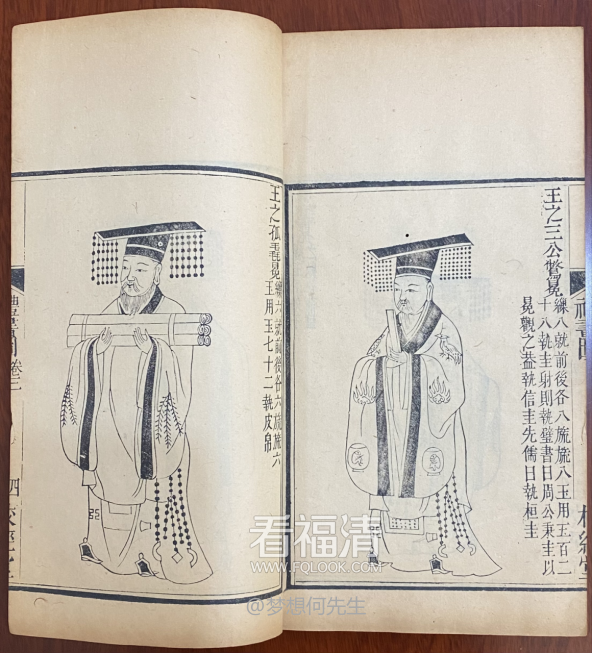 王之三公鷩冕
繅八就前後各八旒旒八玉用玉百二
十八執圭射則執璧書曰周公秉圭以
冕觀之葢執信圭先儒曰執桓圭
王之孤毳冕
繅六就前後各六旒旒六
玉用玉七十二執皮帛
看福清
WWW.FQLOOK.COM
@梦想何先生